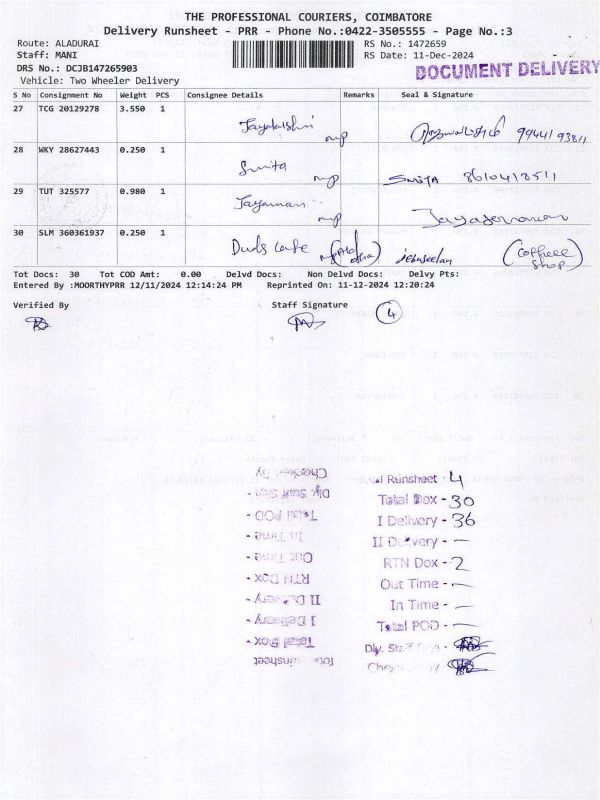 THE PROFESSIONAL COURIERS, COIMBATORE
Delivery Runsheet - PRR - Phone No.:0422-3505555 - Page No.:3
Route: ALADURAI
RS No.: 1472659
Staff: MANI
RS Date: 11-Dec-2024
DRS No.: DCJB147265903
DOCUMENT DELIVERY
Vehicle: Two Wheeler Delivery
S No Consignment No Weight PCS Consignee Details Remarks Seal & Signature
27 TCG 20129278 3.550 1
28 WKY 28627443 0.250 1 Smita SMITA 8610418511
29 TUT 325577 0.980 1
30 SLM 360361937 0.250 1 jebaseelan
Tot Docs: 30 Tot COD Amt: 0.00 Delvd Docs: Non Delvd Docs: Delvy Pts:
Entered By :MOORTHYPRR 12/11/2024 12:14:24 PM Reprinted On: 11-12-2024 12:20:24
Verified By Staff Signature 4
Runsheet - 4
Total Box - 30
I Delivery - 36
II Delivery - —
RTN Dox - 2
Out Time - —
In Time - —
Total POD - —
Dly. Staff Sign -